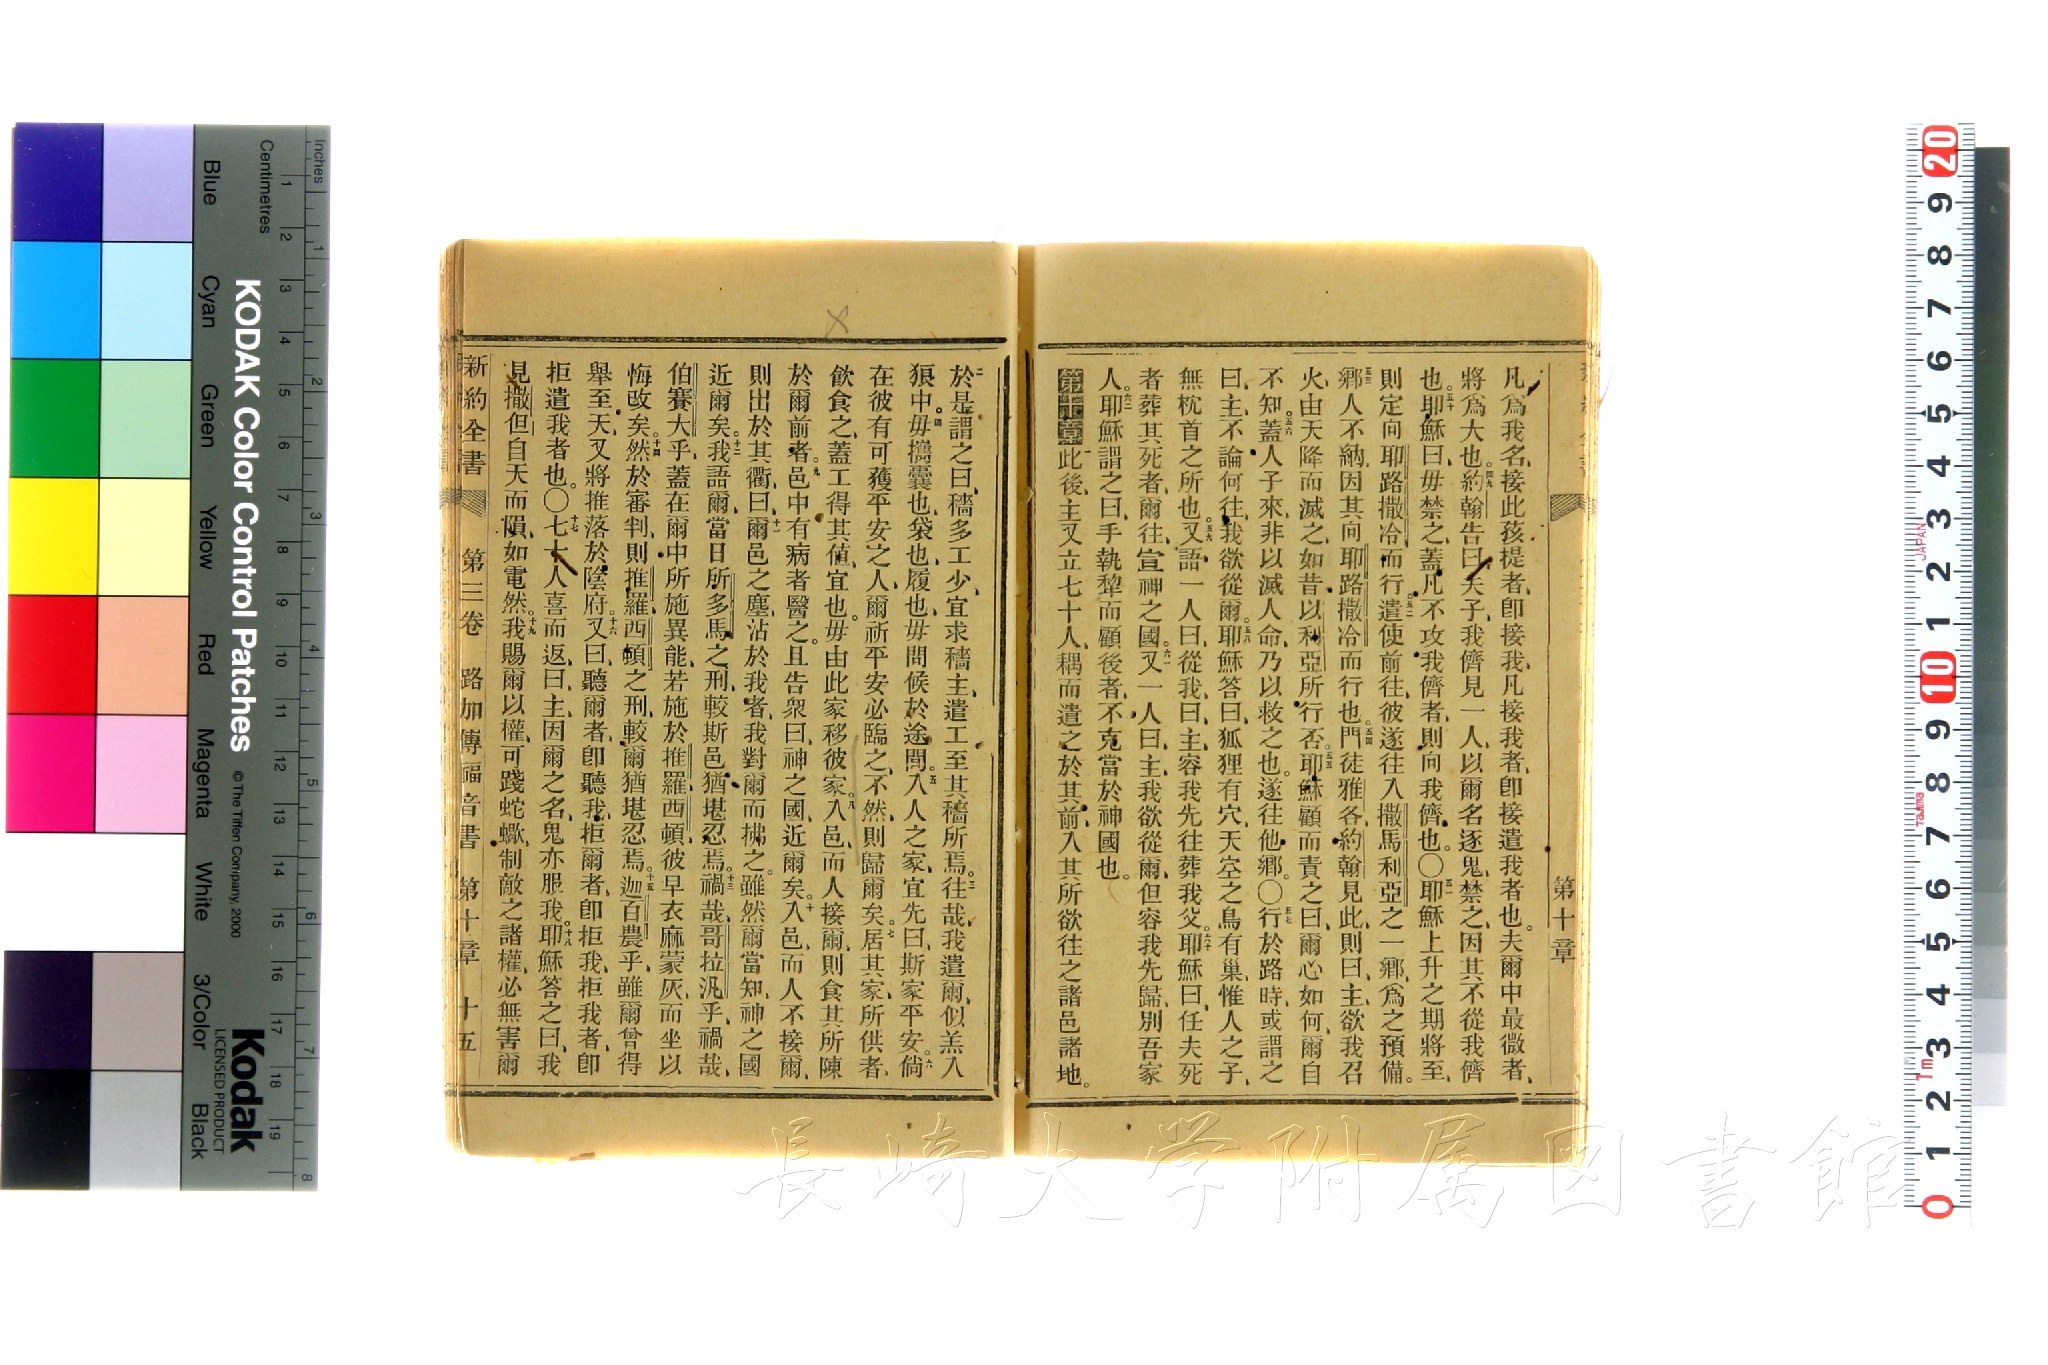 第十章
凡爲我名、接此孩提者、卽接我、凡接我者、卽接遣我者也。夫爾中最微者、
將爲大也。四九約翰告曰、夫子、我儕見一人、以爾名逐鬼、禁之、因其不從我儕
也。五十耶穌曰、毋禁之、蓋凡不攻我儕者、則向我儕也。〇五一耶穌上升之期將至、
則定向耶路撒冷而行。五二遣使前往、彼遂往入撒馬利亞之一鄉、爲之預備。
五三鄉人不納、因其向耶路撒冷而行也。五四門徒雅各約翰見此、則曰、主、欲我召
火由天降而滅之、如昔以利亞所行否。五五耶穌顧而責之曰、爾心如何、爾自
不知。五六蓋人子來、非以滅人命、乃以救之也。遂往他鄉。〇五七行於路時、或謂之
曰、主、不論何往、我欲從爾。五八耶穌答曰、狐狸有穴、天空之鳥有巢、惟人之子、
無枕首之所也。五九又語一人曰、從我、曰、主、容我先往葬我父。六十耶穌曰、任夫死
者葬其死者、爾往、宣神之國。六一又一人曰、主、我欲從爾、但容我先歸、別吾家
人。六二耶穌謂之曰、手執犂而顧後者、不克當於神國也。
第十章 一此後、主又立七十人、耦而遣之於其前、入其所欲往之諸邑諸地。
二於是謂之曰、穡多工少、宜求穡主、遣工至其穡所焉。三往哉、我遣爾、似羔入
狼中。四毋攜囊也、袋也、履也、毋問候於途間。五入人之家、宜先曰、斯家平安。六倘
在彼有可獲平安之人、爾祈平安必臨之、不然、則歸爾矣。七居其家、所供者、
飲食之、蓋工得其値、宜也。毋由此家移彼家。八入邑、而人接爾、則食其所陳
於爾前者。九邑中有病者醫之。且告衆曰、神之國、近爾矣。十入邑、而人不接爾、
則出於其衢、曰、十一爾邑之塵、沾於我者、我對爾而拂之。雖然、爾當知、神之國
近爾矣。十二我語爾、當日所多馬之刑、較斯邑猶堪忍焉。十三禍哉、哥拉汛乎、禍哉、
伯賽大乎、蓋在爾中所施異能、若施於推羅西頓、彼早衣麻蒙灰而坐以
悔改矣。十四然於審判、則推羅西頓之刑、較爾猶堪忍焉。十五迦百農乎、雖爾曾得
舉至天、又將推落於陰府。十六又曰、聽爾者、卽聽我、拒爾者、卽拒我、拒我者、卽
拒遣我者也。〇十七七十人喜而返、曰、主、因爾之名、鬼亦服我。十八耶穌答之曰、我
見撒但自天而隕、如電然。十九我賜爾以權、可踐蛇蠍、制敵之諸權、必無害爾
新約全書 第三卷 路加傳福音書 第十章 十五
Inches
Centimetres
KODAK Color Control Patches
© The Tiffen Company, 2000
Kodak
LICENSED PRODUCT
Blue
Cyan
Green
Yellow
Red
Magenta
White
3/Color
Black
JAPAN
Tajima
1m
長崎大学附属図書館